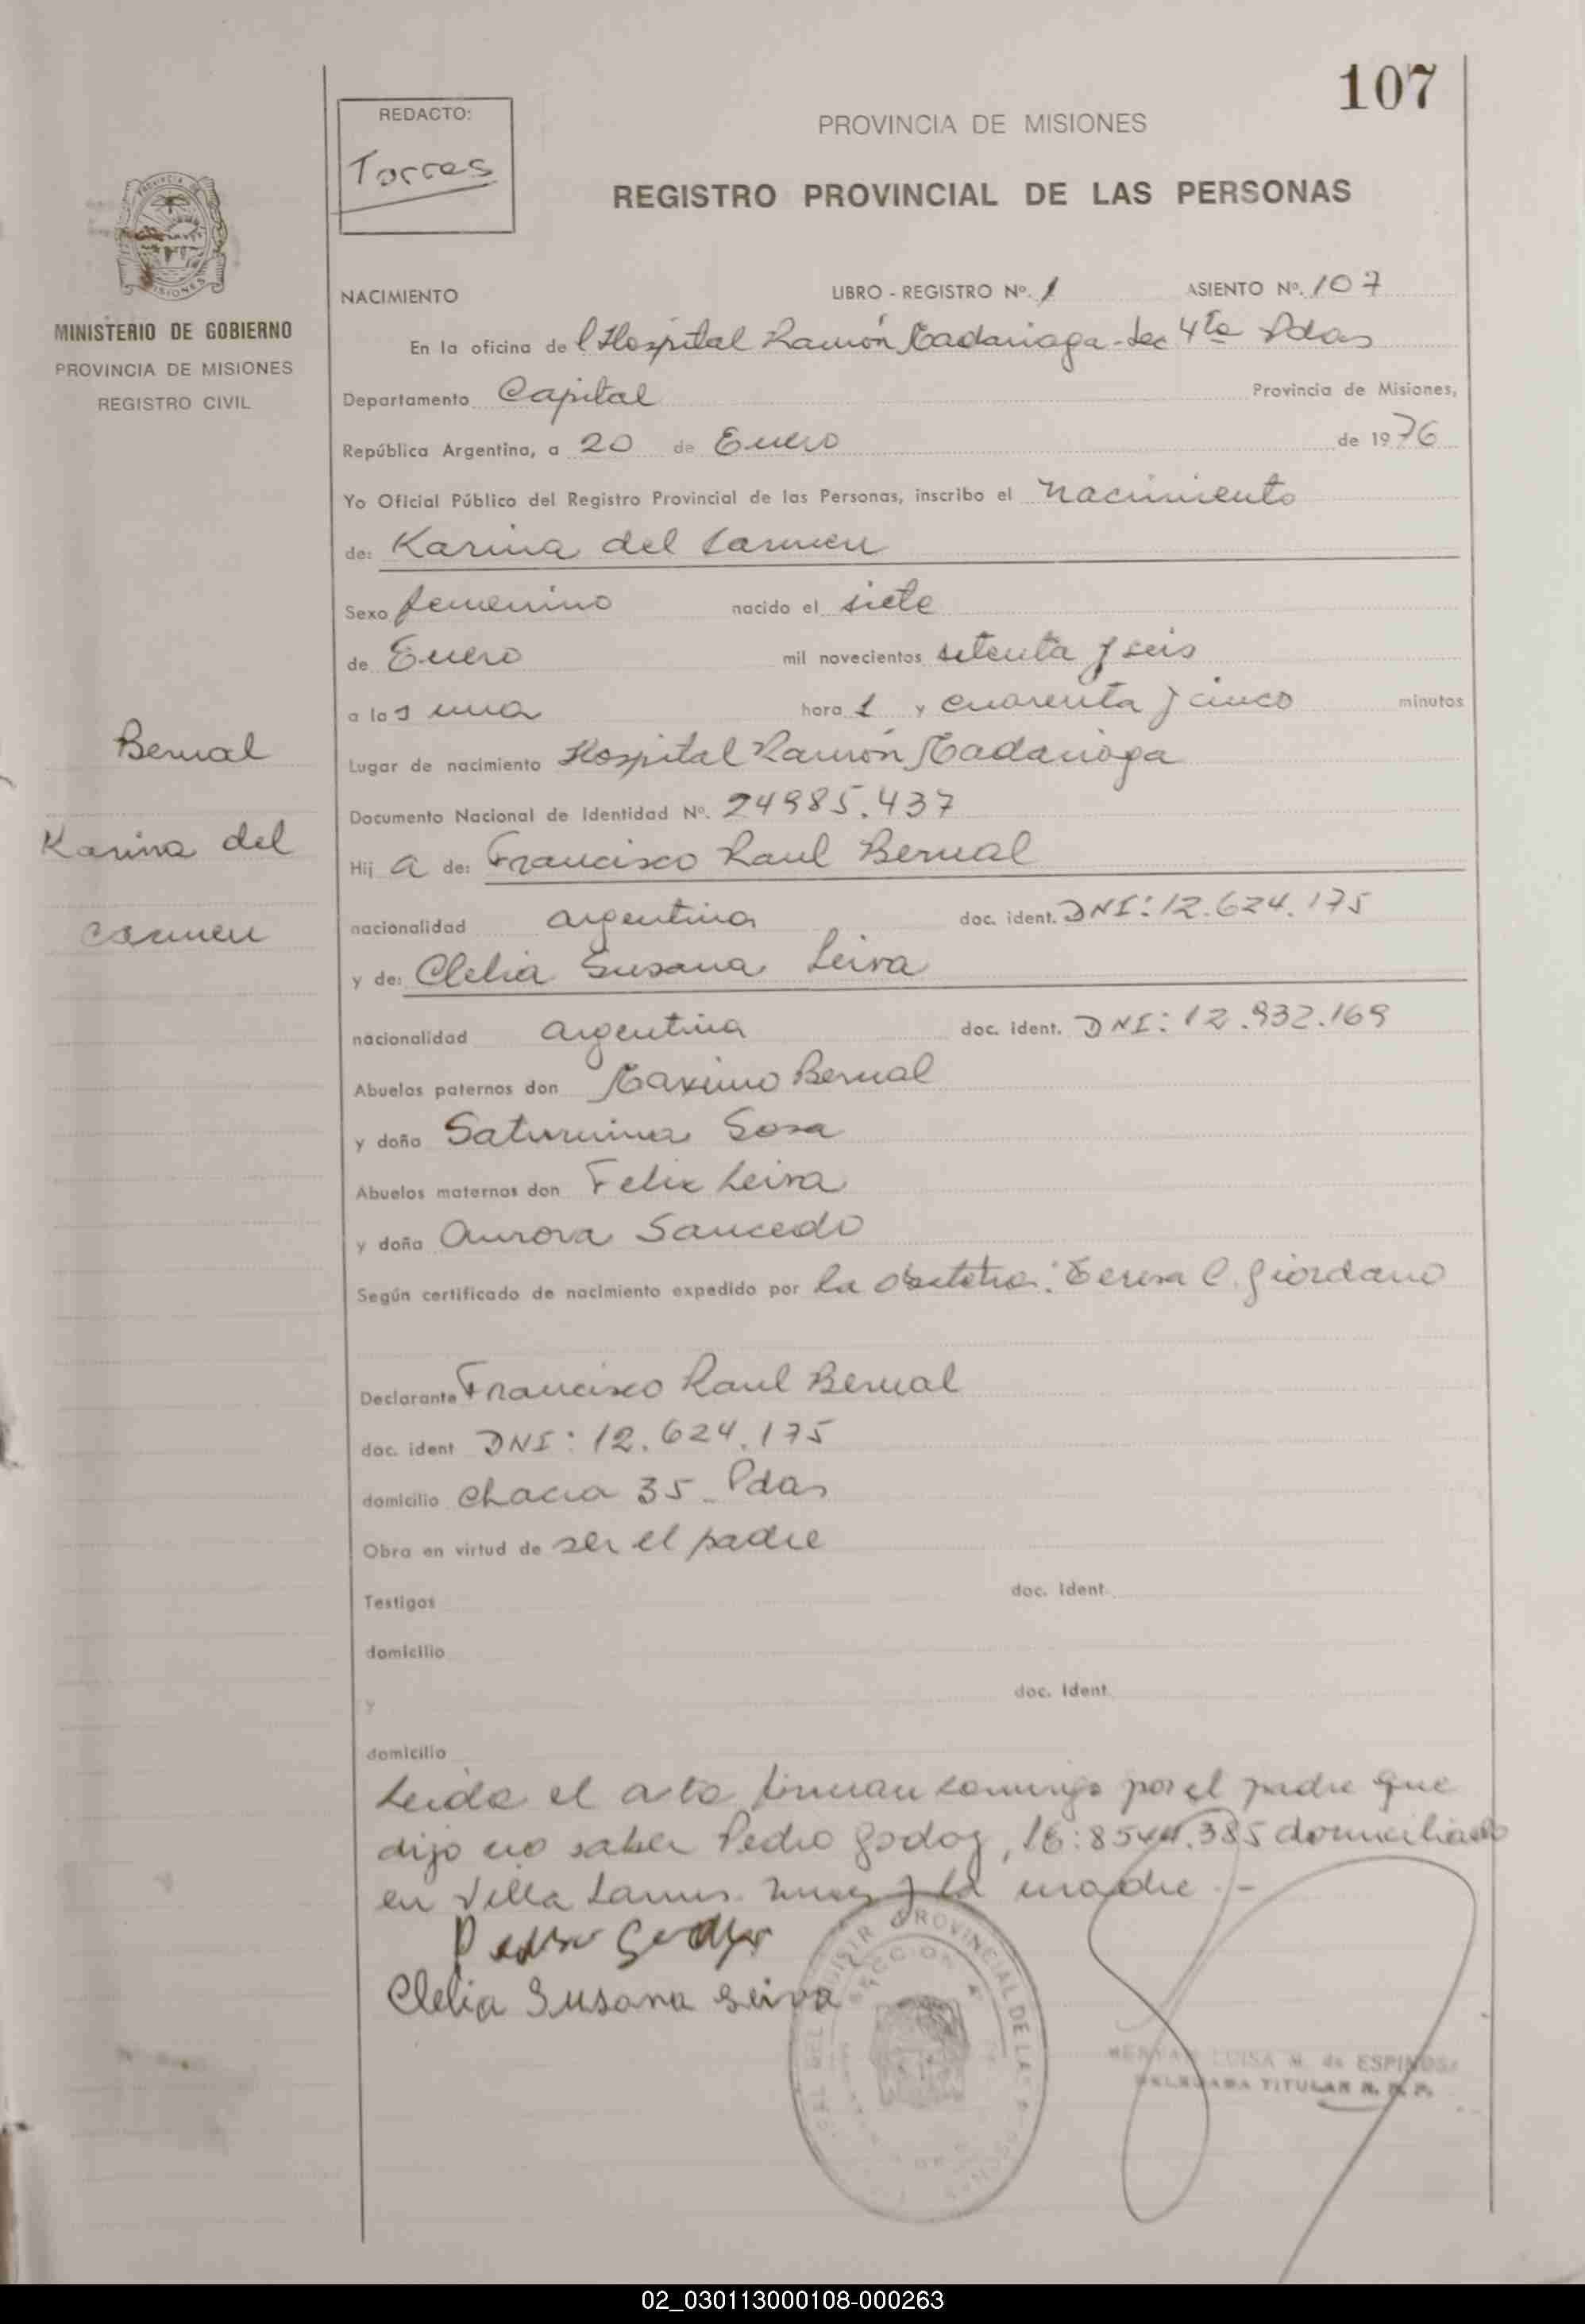 107
REDACTO:
Torres
PROVINCIA DE MISIONES
REGISTRO PROVINCIAL DE LAS PERSONAS
MINISTERIO DE GOBIERNO
PROVINCIA DE MISIONES
REGISTRO CIVIL
NACIMIENTO LIBRO - REGISTRO Nº. 1 ASIENTO Nº. 107
En la oficina de l Hospital Ramón Madariaga - Sec 4ta Pdas
Departamento Capital Provincia de Misiones,
República Argentina, a 20 de Enero de 1976
Yo Oficial Público del Registro Provincial de las Personas, inscribo el nacimiento
de: Karina del Carmen
Sexo femenino nacido el siete
de Enero mil novecientos setenta y seis
a las una hora 1 y cuarenta y cinco minutos
Lugar de nacimiento Hospital Ramón Madariaga
Documento Nacional de Identidad Nº. 24985.437
Hij a de: Francisco Raul Bernal
nacionalidad argentina doc. ident. DNI: 12.624.175
y de: Clelia Susana Leiva
nacionalidad argentina doc. ident. DNI: 12.932.169
Abuelos paternos don Maximo Bernal
y doña Saturnina Sosa
Abuelos maternos don Felix Leiva
y doña Aurora Saucedo
Según certificado de nacimiento expedido por la obstetra: Teresa C. Giordano
Declarante Francisco Raul Bernal
doc. ident DNI: 12.624.175
domicilio chacra 35 - Pdas
Obra en virtud de ser el padre
Testigos doc. ident.
domicilio
y doc. ident.
domicilio
Leida el acta firman conmigo por el padre que
dijo no saber Pedro Godoy, domiciliado
en Villa Lanus y la madre.-
Pedro Godoy
Clelia Susana Leiva
LUISA M. de ESPINOSA
DELEGADA TITULAR R. P. P.
Bernal
Karina del
Carmen
02_030113000108-000263